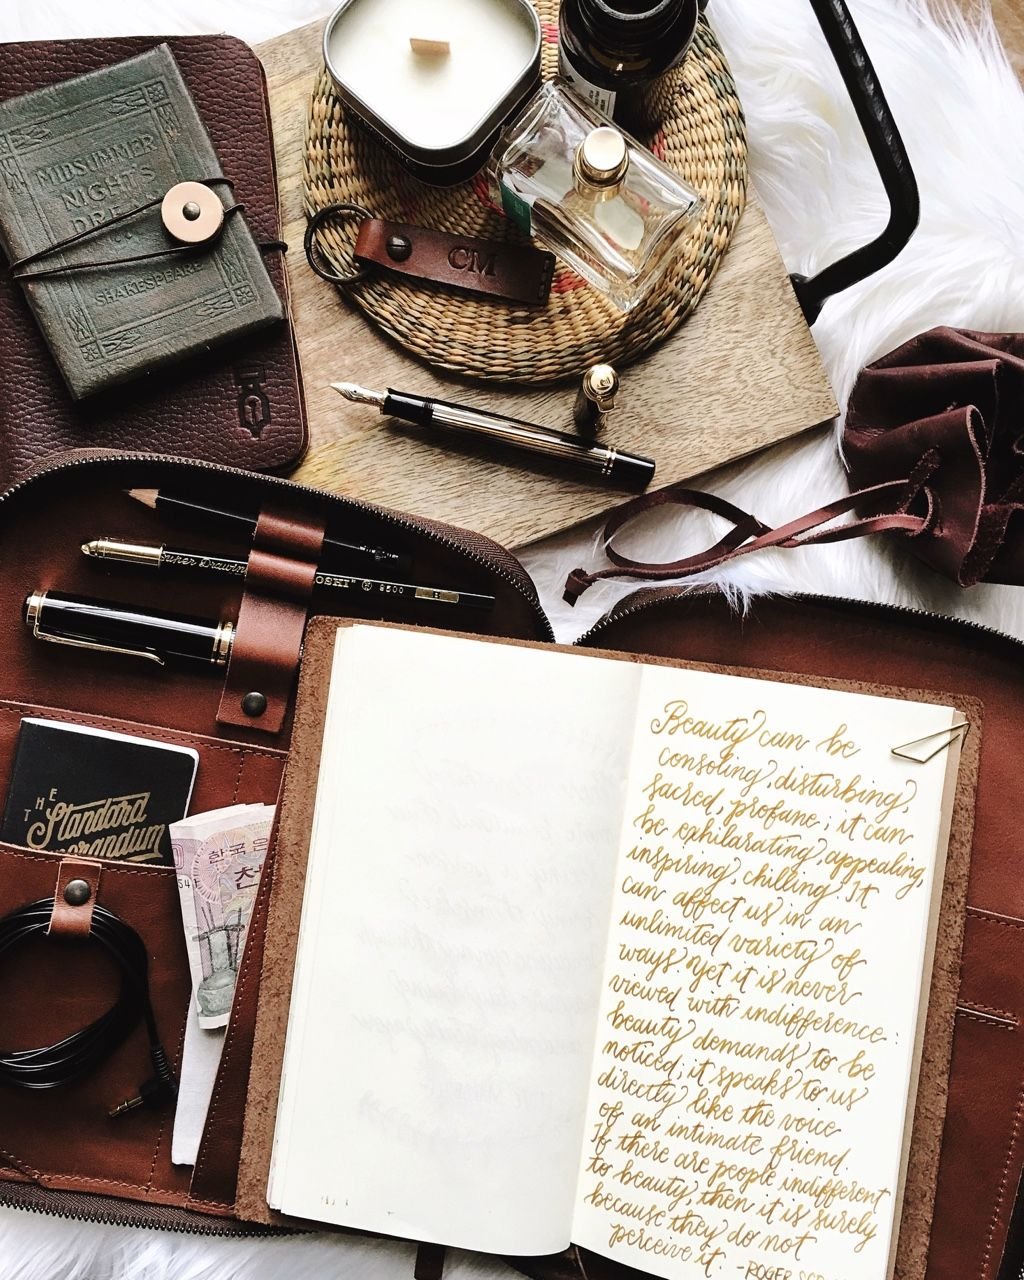 MIDSUMMER
NIGHT'S
SHAKESPEARE
CM
Super Drawing
9500
B
THE
Standard
한국은
천
Beauty can be
consoling, disturbing,
sacred, profane; it can
be exhilarating, appealing,
inspiring, chilling. It
can affect us in an
unlimited variety of
ways. Yet it is never
viewed with indifference:
beauty demands to be
noticed; it speaks to us
directly like the voice
of an intimate friend.
If there are people indifferent
to beauty, then it is surely
because they do not
perceive it. -ROGER